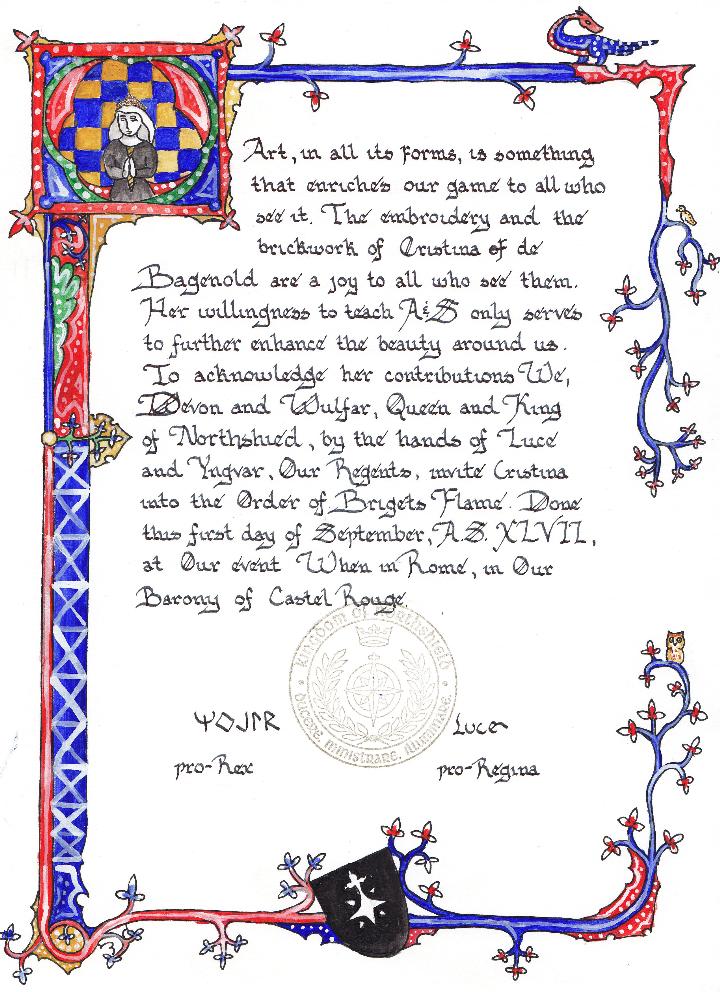 Art, in all its forms, is something
that enriches our game to all who
see it. The embroidery and the
brickwork of Cristina of de
Bagenold are a joy to all who see them.
Her willingness to teach A&S only serves
to further enhance the beauty around us.
To acknowledge her contributions We,
Devon and Wulfar, Queen and King
of Northshied, by the hands of Luce
and Yngvar, Our Regents, invite Cristina
into the Order of Brigets Flame. Done
this first day of September, A.S. XLVII,
at Our event When in Rome, in Our
Barony of Castel Rouge.
Kingdom of Northshield
Ducere, ministrare, illuminare.
Luce
pro-Rex pro-Regina